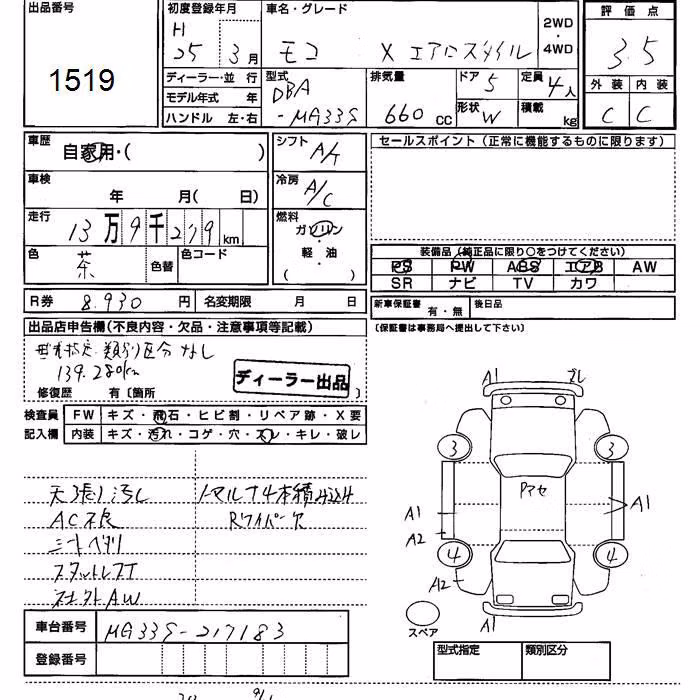 出品番号
1519
初度登録年月
H
25 3月
車名・グレード
モコ X エアロスタイル
2WD
・
4WD
評価点
3.5
外装 内装
C C
ディーラー・並行
モデル年式 年
ハンドル 左・右
型式
DBA
-MG33S
排気量
660 cc
ドア 5
形状 W
定員 4人
積載 kg
車歴
自家用・( )
シフト
A/T
セールスポイント(正常に機能するものに限ります)
車検
年 月( 日)
冷房
A/C
走行
13万9千279km
燃料
ガソリン
・
軽・油
( )
色
茶
色替
色コード
装備品(純正品に限り○をつけてください)
PS PW ABS エアB AW
SR ナビ TV カワ
R券 8,930 円
名変期限 月 日
新車保証書 有・無
後日品
(保証書は事務局へ提出して下さい)
出品店申告欄(不良内容・欠品・注意事項等記載)
類別区分なし
139,280km
ディーラー出品
修復歴 有〔箇所
検査員 FW キズ・飛石・ヒビ割・リペア跡・X要
記入欄 内装 キズ・汚れ・コゲ・穴・スレ・キレ・破レ
天張り汚れ
ノーマルT4本積み込み
AC不良
Rワイパー欠
シートヘタリ
スタットレスT
社外AW
A1
3
3
Pマセ
A1
A1
A2
4
4
A2
A1
スペア
車台番号 MG33S-217183
登録番号
型式指定 類別区分